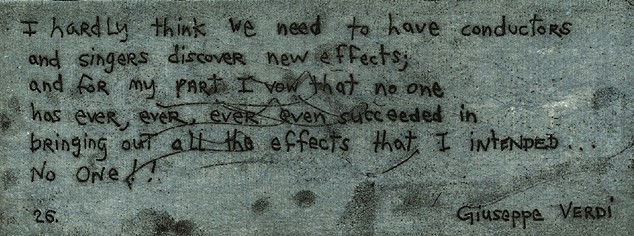 I hardly think we need to have conductors
and singers discover new effects;
and for my part I vow that no one
has ever, ever, ever even succeeded in
bringing out all the effects that I intended...
No one!!
26.
Giuseppe Verdi